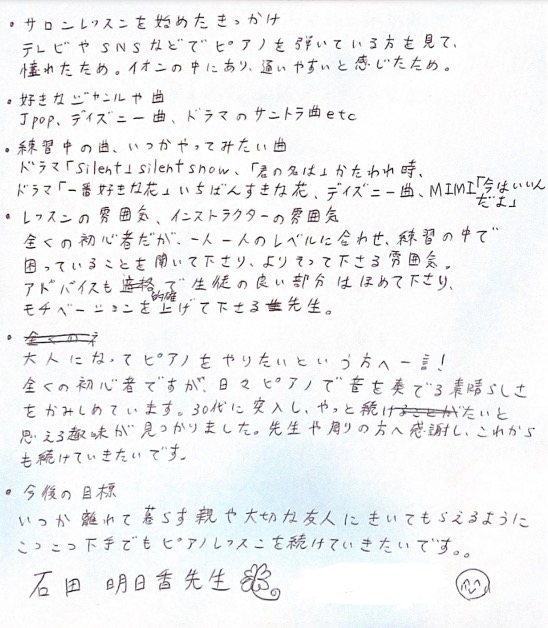 ・サロンレッスンを始めたきっかけ
テレビやSNSなどでピアノを弾いている方を見て、
憧れたため。イオンの中にあり、通いやすいと感じたため。
・好きなジャンルや曲
Jpop、ディズニー曲、ドラマのサントラ曲etc
・練習中の曲、いつかやってみたい曲
ドラマ「silent」silent snow、「君の名は」かたわれ時、
ドラマ「一番好きな花」いちばんすきな花、ディズニー曲、MIMI「今はいいんだよ」
・レッスンの雰囲気、インストラクターの雰囲気
全くの初心者だが、一人一人のレベルに合わせ、練習の中で
困っていることを聞いて下さり、よりそって下さる雰囲気。
アドバイスも的確で生徒の良い部分はほめて下さり、
モチベーションを上げて下さる先生。
・
大人になってピアノをやりたいという方へ一言!
全くの初心者ですが、日々ピアノで音を奏でる素晴らしさ
をかみしめています。30代に突入し、やっと続けたいと
思える趣味が見つかりました。先生や周りの方へ感謝し、これから
も続けていきたいです。
・今後の目標
いつか離れて暮らす親や大切な友人にきいてもらえるように
こつこつ下手でもピアノレッスンを続けていきたいです。。
石田 明日香先生